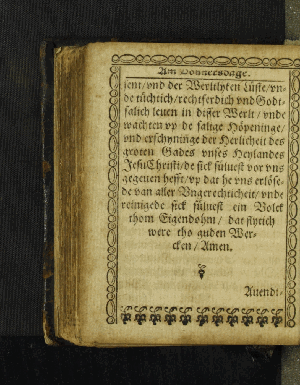 Am Donnersdage.
sent/vnd der Werltlyken Lüste/vn-
de tüchtich/rechtferdich vnd Godt-
salich leuen in disser Werlt/vnde
wachten vp de salige Höpeninge/
vnd erschyninge der Herlicheit des
groten Gades vnses Heylandes
JesuChristi/de sick süluest vor vns
gegeuen hefft/vp dat he vns erlöse-
de van aller Vngerechticheit/vnde
reinigede sick süluest ein Volck
thom Eigendohm/dat flytich
were tho guden Wer-
cken/Amen.
Auend-